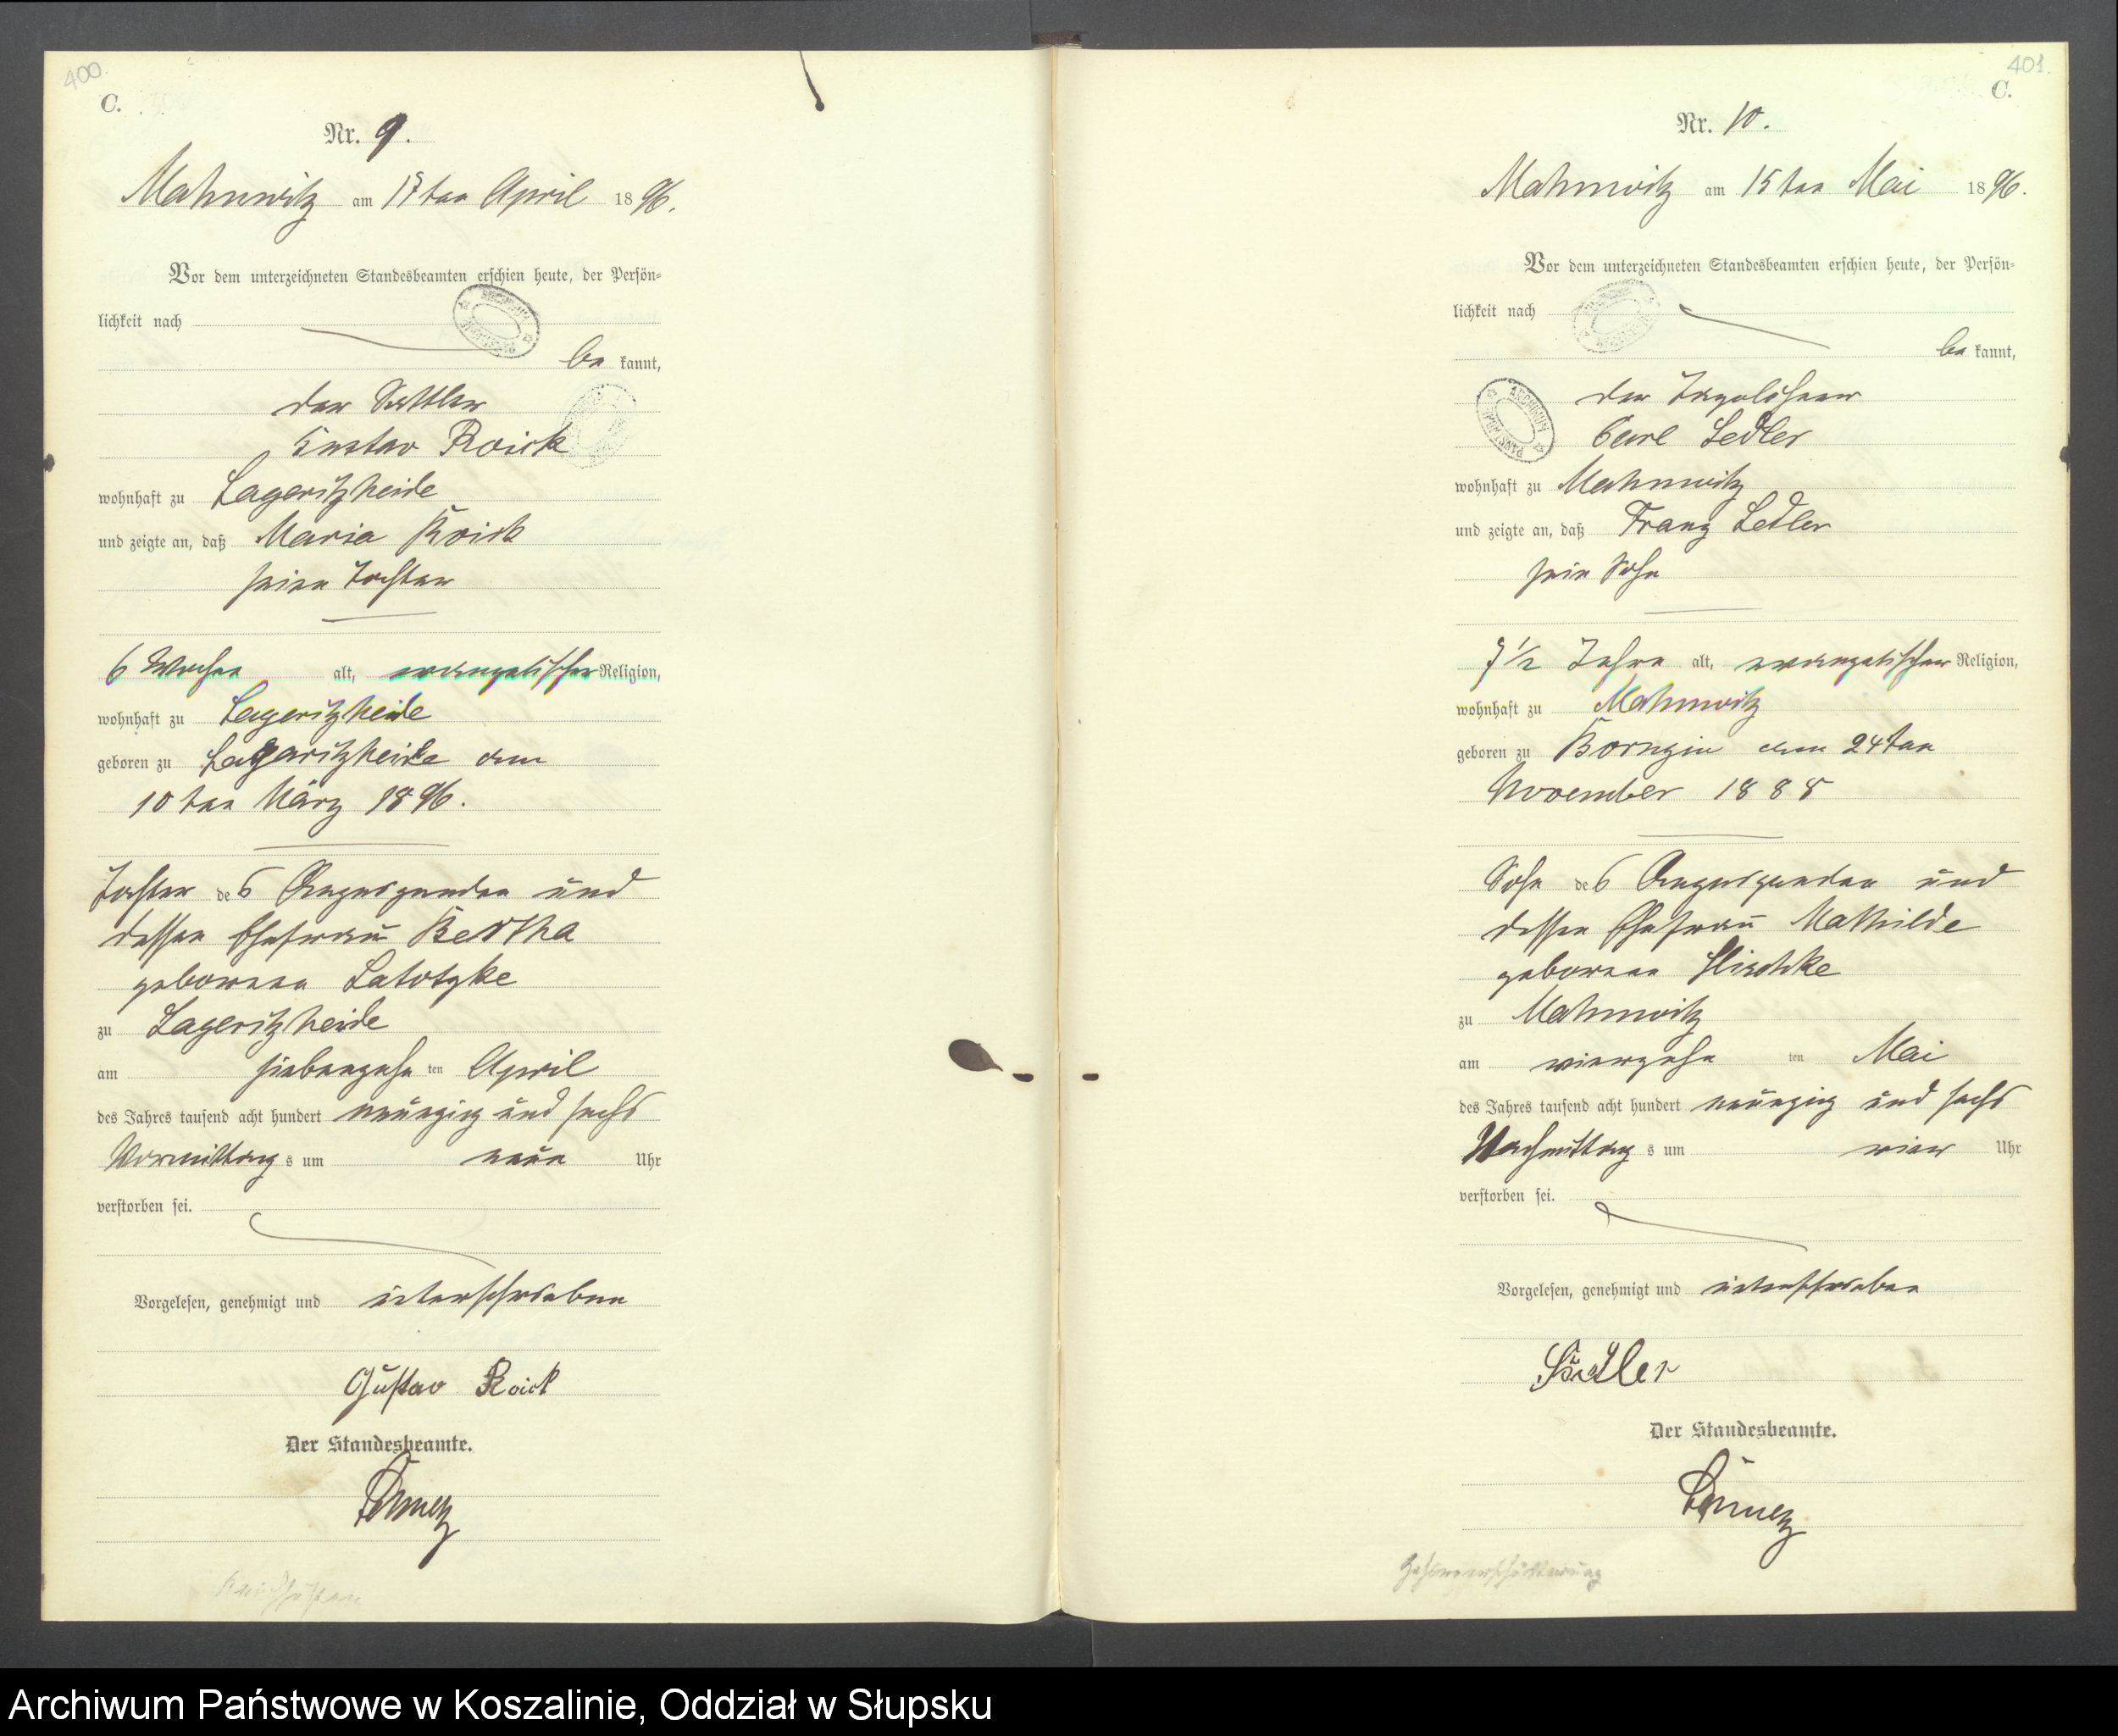 400
C.
Nr. 9.
Mahnwitz am 17ten April 1896.
Vor dem unterzeichneten Standesbeamten erschien heute, der Persön-
lichkeit nach
bekannt,
der Sattler
Gustav Roick
wohnhaft zu Lageritzheide
und zeigte an, daß Maria Roick
seine Tochter
6 Wochen alt, evangelischer Religion,
wohnhaft zu Lageritzheide
geboren zu Lageritzheide am
10ten März 1896.
Tochter des Anzeigenden und
dessen Ehefrau Bertha
geborenen Latotzke
zu Lageritzheide
am siebenzehnten April
des Jahres tausend acht hundert neunzig und sechs
Vormittags um neun Uhr
verstorben sei.
Vorgelesen, genehmigt und unterschrieben
Gustav Roick
Der Standesbeamte.
Keuchhusten
401.
C.
Nr. 10.
Mahnwitz am 15ten Mai 1896.
Vor dem unterzeichneten Standesbeamten erschien heute, der Persön-
lichkeit nach
bekannt,
der Tagelöhner
Carl Sedler
wohnhaft zu Mahnwitz
und zeigte an, daß Franz Sedler
sein Sohn
7 1/2 Jahre alt, evangelischer Religion,
wohnhaft zu Mahnwitz
geboren zu Bornzin am 24ten
November 1888
Sohn des Anzeigenden und
dessen Ehefrau Mathilde
geborenen
zu Mahnwitz
am vierzehnten Mai
des Jahres tausend acht hundert neunzig und sechs
Nachmittags um vier Uhr
verstorben sei.
Vorgelesen, genehmigt und unterschrieben
Der Standesbeamte.
Gehirnerschütterung
Archiwum Państwowe w Koszalinie, Oddział w Słupsku